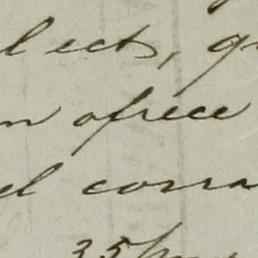 lects, q
n ofrece
el corra
35